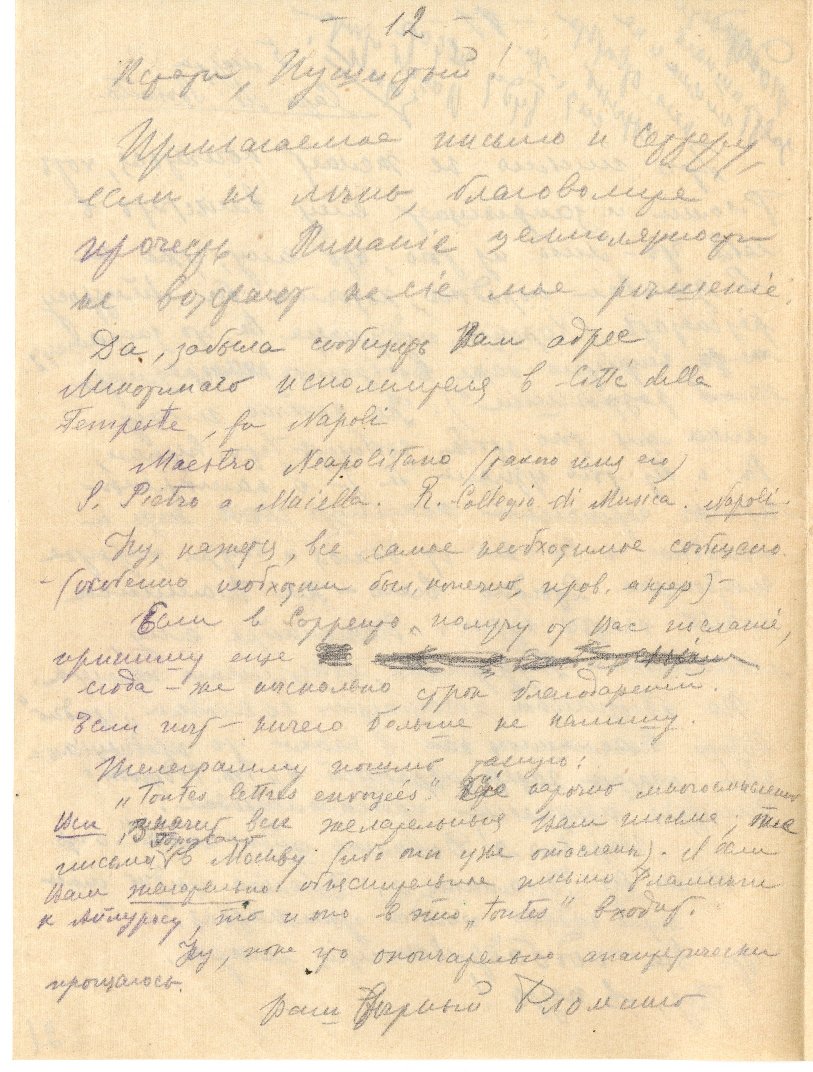 12
Кстати, Пушистый!
Прилагаемое письмо к Серреру,
если не лично, благоволите
прочесть. Никакие
не возьмут на себя мое решение.
Да, забыла сообщить Вам адрес
исполнителя в Città della
Tempeste, fa Napoli
Maestro Neapolitano (такто имя его)
S. Pietro a Maiella. R. Collegio di Musica. Napoli.
Ну, кажется, все самое необходимое сообщено.
— (особенно необходим был, конечно, пров. адрес) —
Если в Сорренто получу от Вас писаніе,
припишу еще
сюда-же нѣсколько строк благодарений.
Если нѣт — ничего больше не напишу.
Телеграмму пошлю такую:
„Toutes lettres envoyées". нарочно многосмысленно
Все, значит все желательныя Вам письма; те
письма в Москву (ибо они уже отосланы). А если
Вам желательно объяснительное письмо Фламинги
к Амптурасу, то и оно в это „toutes" входит.
Ну, пока что окончательно
прощаюсь.
Ваш Черный Фломинго